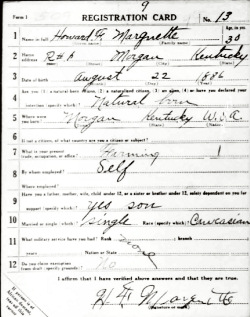 9
Form 1 REGISTRATION CARD No. 13
1 Name in full Howard F. Marquette Age, in yrs. 30
(Family name)
2 Home address R# 1 Morgan Kentucky
3 Date of birth August 22 1886
(Month) (Day) (Year)
4 Are you (1) a natural-born citizen, (2) a naturalized citizen, (3) an alien, (4) or have you declared your
intention (specify which)? Natural born
5 Where were you born? Morgan Kentucky U.S.A.
6 If not a citizen, of what country are you a citizen or subject?
7 What is your present trade, occupation, or office? Farming 1
8 By whom employed? Self
Where employed?
9 Have you a father, mother, wife, child under 12, or a sister or brother under 12, solely dependent on you for
support (specify which)? yes son
10 Married or single (which)? Single Race (specify which)? Caucasian
11 What military service have you had? Rank none branch
years
12 Do you claim exemption from draft (specify grounds)? No
I affirm that I have verified above answers and that they are true.
H. F. Marquette